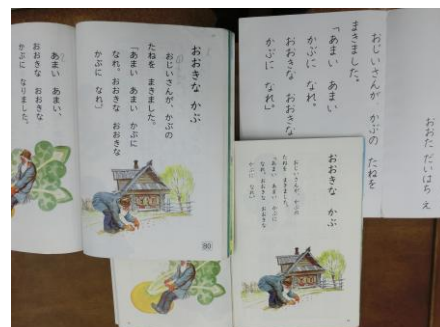 おおきな かぶ
おじいさんが、かぶの
たねを まきました。
「あまい あまい かぶに
なれ。おおきな おおきな
かぶに なれ。」
80
あまい あまい、
おおきな おおきな
かぶに なりました。
おおた だいはち え
おじいさんが かぶの たねを
まきました。
「あまい あまい
かぶに なれ。
おおきな おおきな
かぶに なれ」
おおきな かぶ
おじいさんが、かぶの
たねを まきました。
「あまい あまい かぶに
なれ。おおきな おおきな
かぶに なれ。」